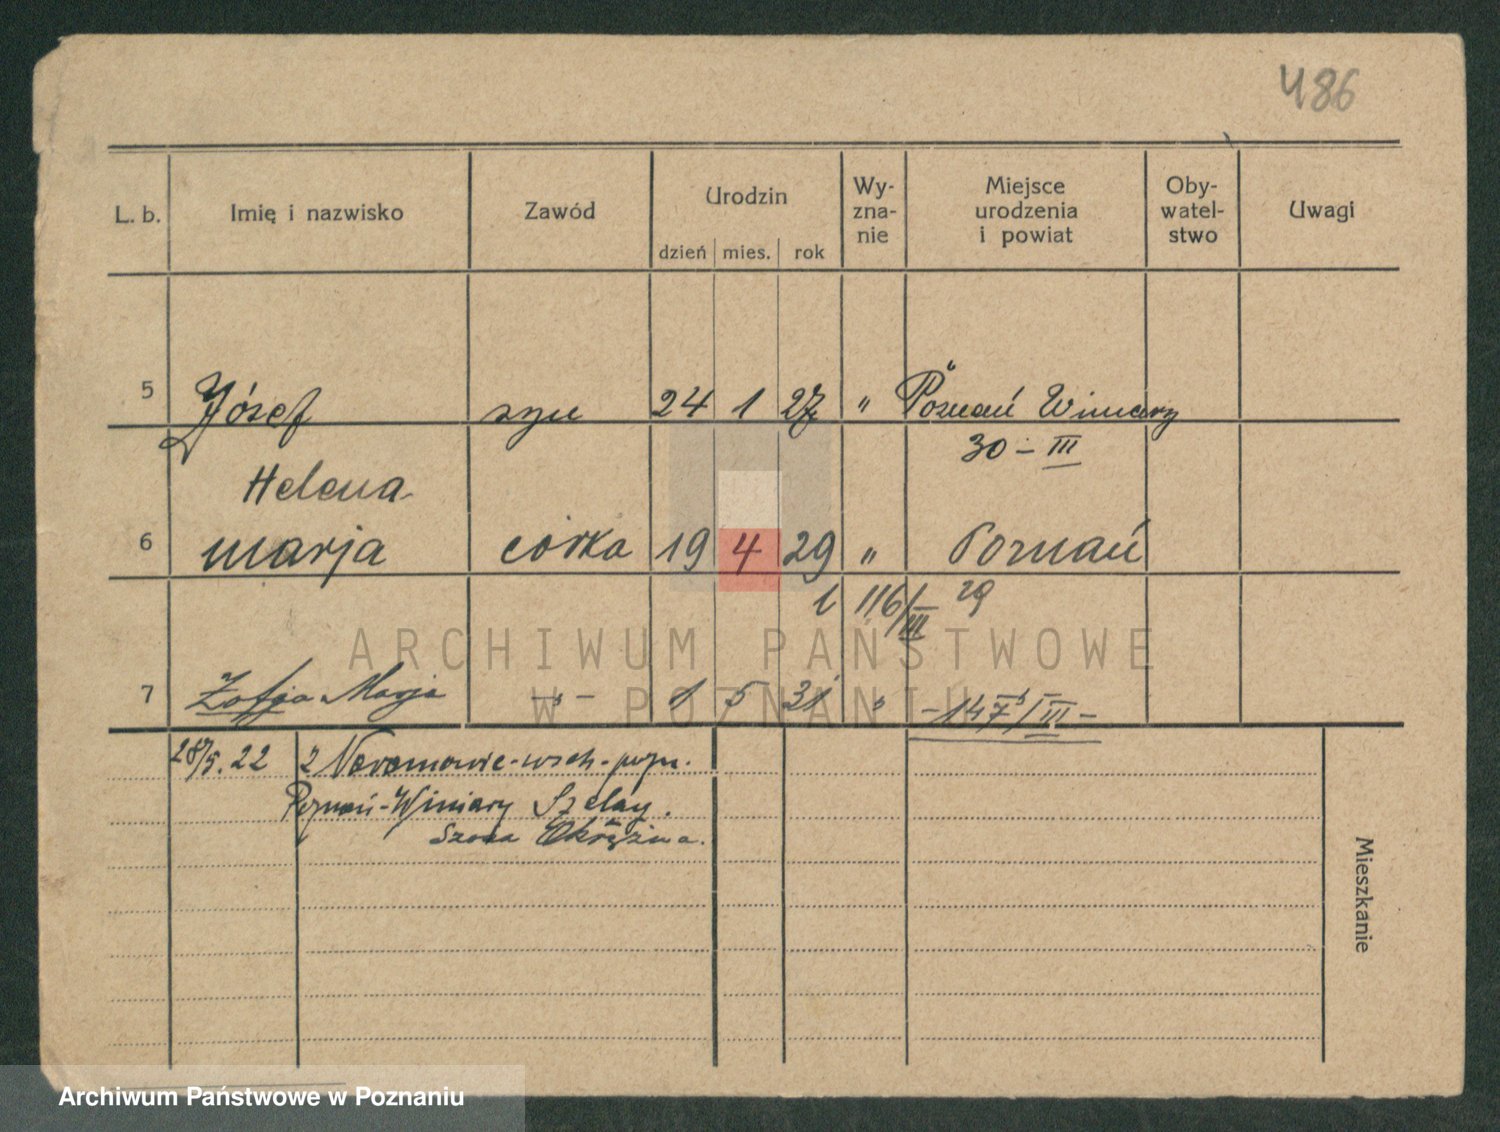 486
L. b. Imię i nazwisko Zawód Urodzin Wy-zna-nie Miejsce urodzenia i powiat Oby-watel-stwo Uwagi
dzień mies. rok
5 Józef syn 24 1 27 " Poznań Winiary
30 – III
Helena
6 marja córka 19 4 29 " Poznań
1 116/III 29
ARCHIWUM PAŃSTWOWE
W POZNANIU
7 Zofja Marja –"– 1 5 31 " –147/III–
28/5. 22 z Naramowic-wsch-pozn.
Poznań-Winiary Szeląg.
Szosa Okrężna.
Mieszkanie
Archiwum Państwowe w Poznaniu